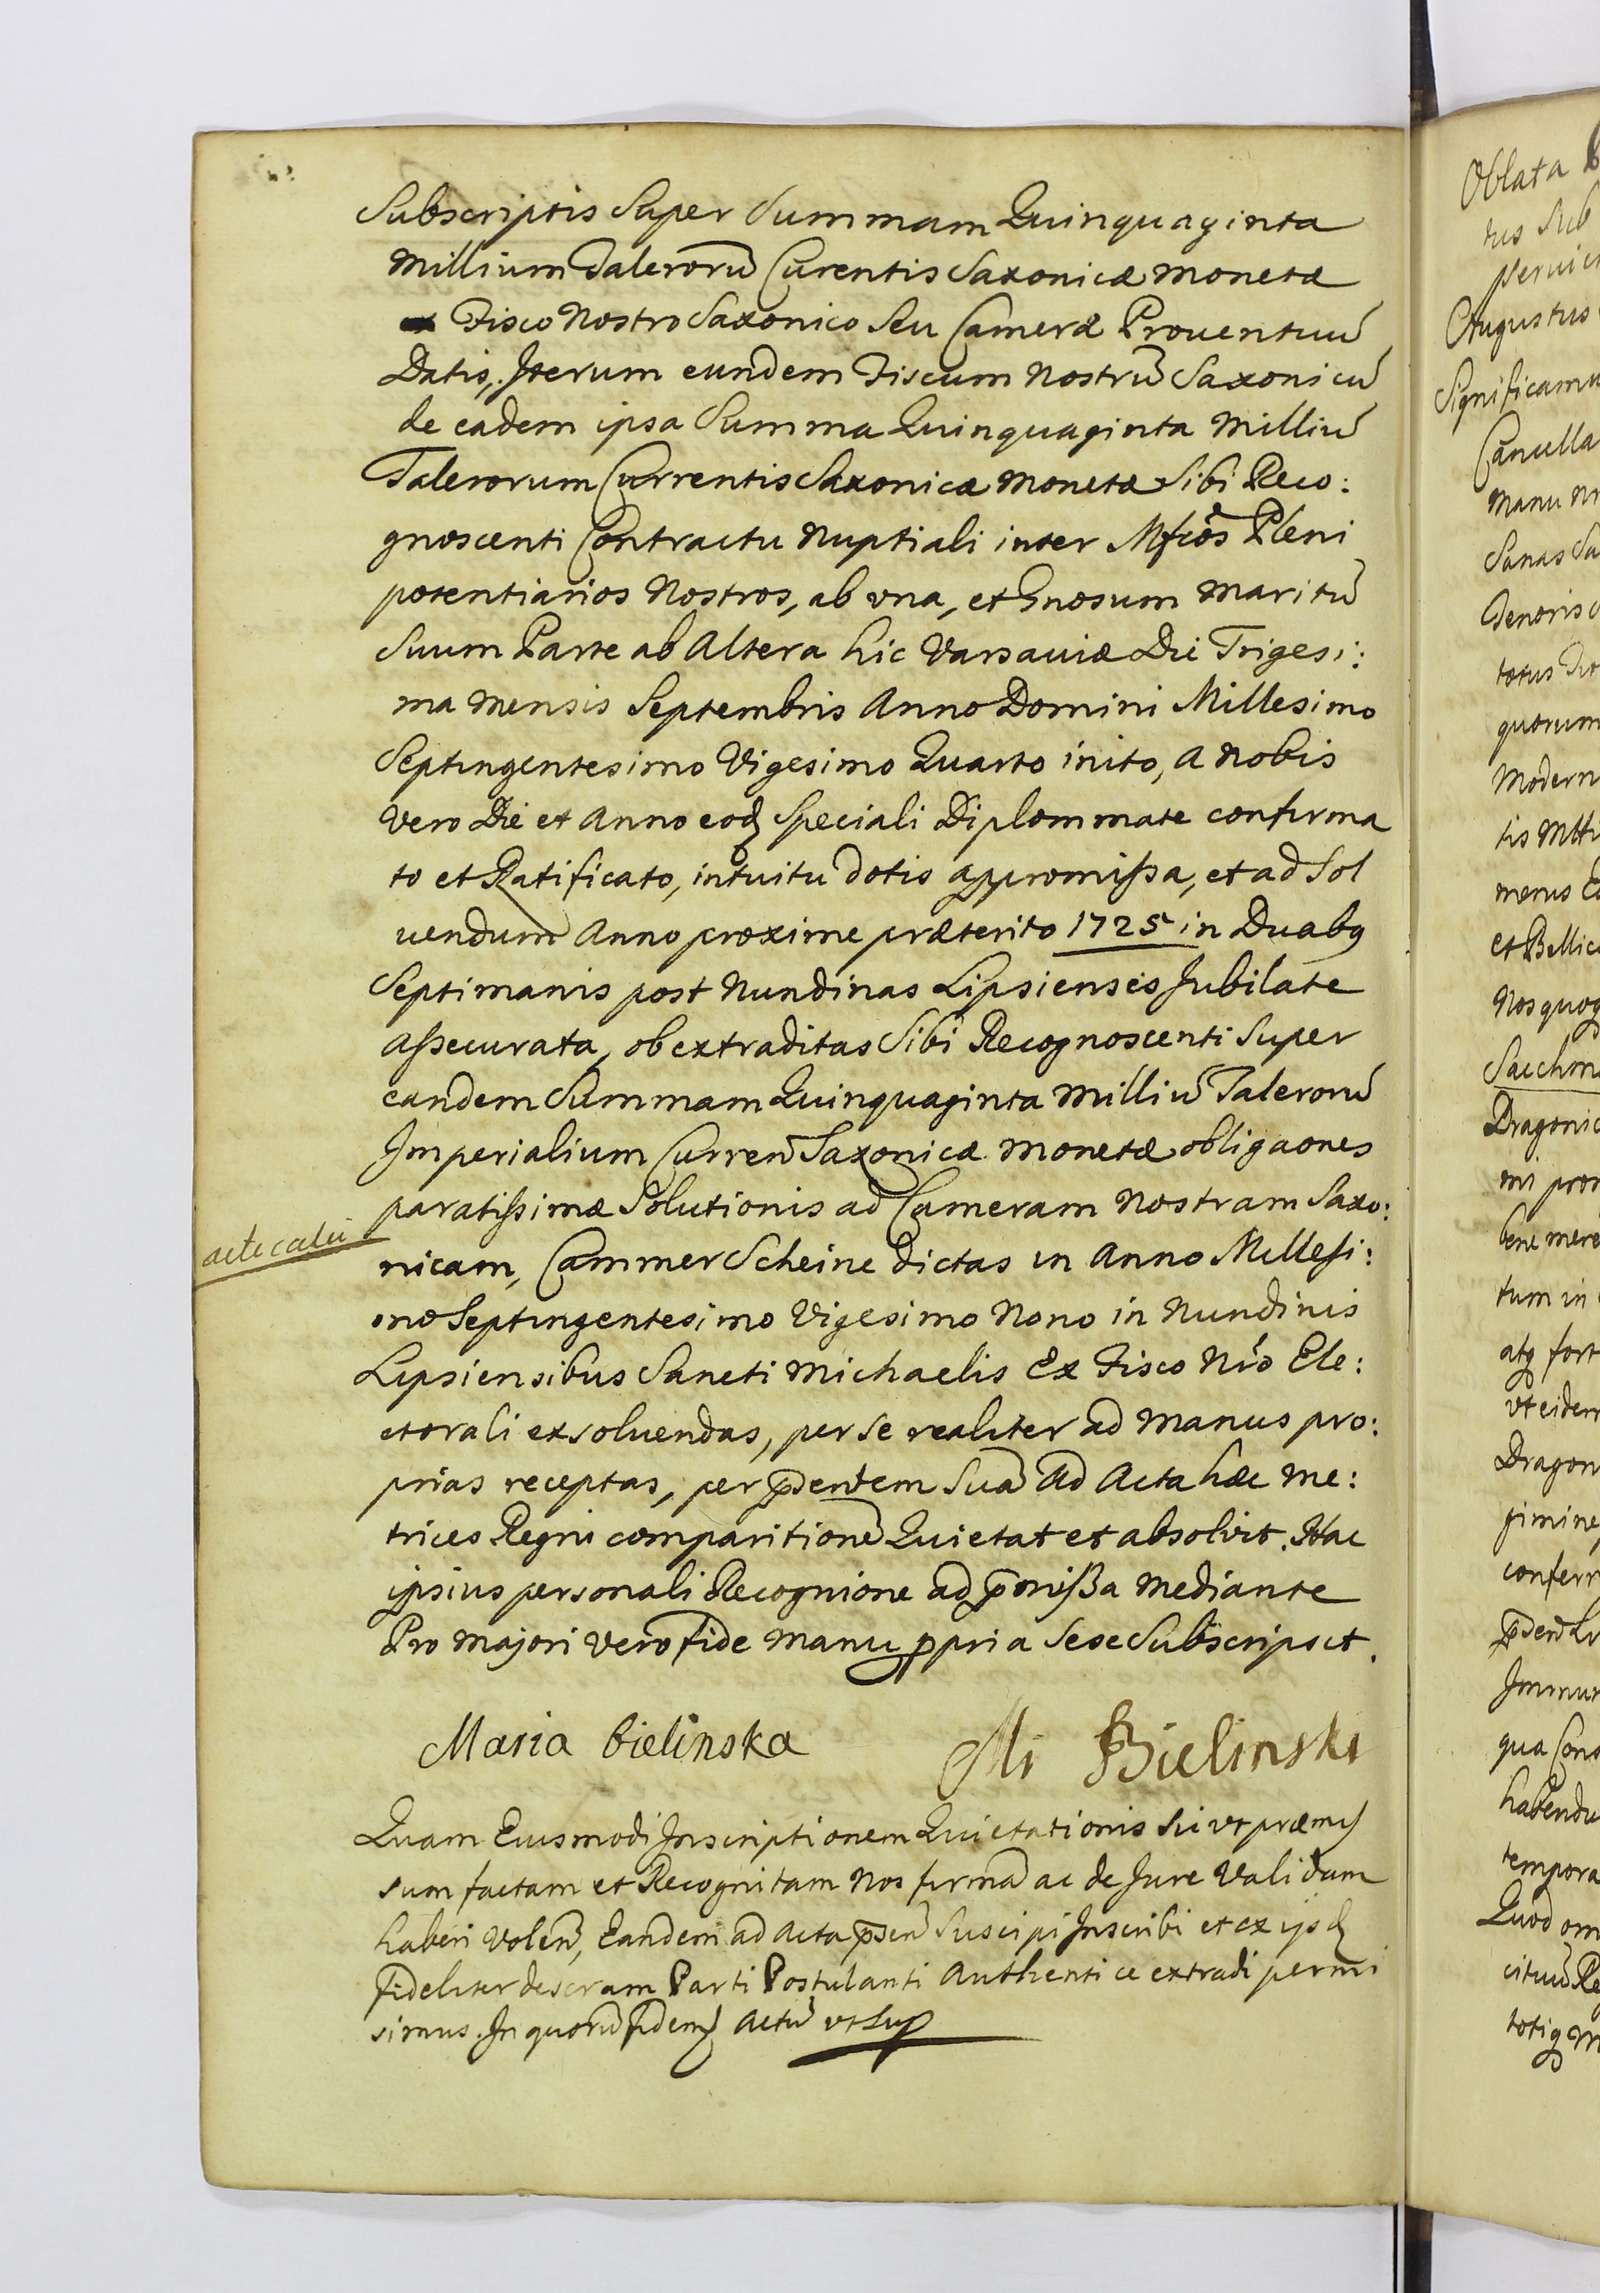 Subscriptis Super Summam Quinquaginta
Millium Talerorū Curentis Saxonicæ Monetæ
Fisco Nostro Saxonico Seu Cameræ Prouentuū
Datis, Iterum eundem Fiscum Nostrū Saxonicū
de eadem ipsa Summa Quinquaginta Milliū
Talerorum Currentis Saxonicæ Monetæ Sibi Reco:
gnoscenti Contractu Nuptiali inter Mfcōs Pleni
potentiarios Nostros, ab vna, et Gnosum Maritū
Suum Parte ab Altera hic Varsauiæ Die Trigesi:
ma Mensis Septembris Anno Domini Millesimo
Septingentesimo Vigesimo Quarto inito, a Nobis
Vero Die et Anno eod Speciali Diplommate confirma
to et Ratificato, intuitu dotis appromissa, et ad Sol
uendum Anno proxime præterito 1725 in Duabq
Septimanis post Nundinas Lipsienses Jubilate
assecurata, ob extraditas Sibi Recognoscenti Super
eandem Summam Quinquaginta Milliū Talerorū
Imperialium Curren Saxonicæ Monetæ obligaones
paratissimæ Solutionis ad Cameram Nostram Saxo:
nicam, Cammer Scheine dictas in Anno Millesi:
mo Septingentesimo Vigesimo Nono in Nundinis
Lipsiensibus Sancti Michaelis Ex Fisco Nro Ele:
ctorali exsoluendas, per se realiter ad Manus pro:
prias receptas, per p̄sentem Suā Ad Acta hæc Me:
trices Regni comparitionē Quietat et absolvit. Hac
ipsius personali Recognione ad p̄missa Mediante
Pro Majori Vero fide Manu ppria Sese Subscripsit.
Maria Bielinska Mi Bielinski
Quam Eiusmodi Inscriptionem Quietationis Sic vt præmis
sum factam et Recognitam Nos firmā ac de Jure Validam
haberi Volen, Eandem ad Acta p̄sen Suscipi Inscribi et ex ijsd
fideliter descram Parti Postulanti Authentice extradi permi
simus. In quorū fidem Actū vt Sup
Oblata
tus Sub
Augustus
Significamu
Manu
Sanas Sa
quorum
Modern
et Bellic
Nos quoq
Dragonic
bene mere
tum in
atq fort
vt eidem
Dragon
gimine
conferr
Immun
qua Cons
habendu
tempora
Quod om